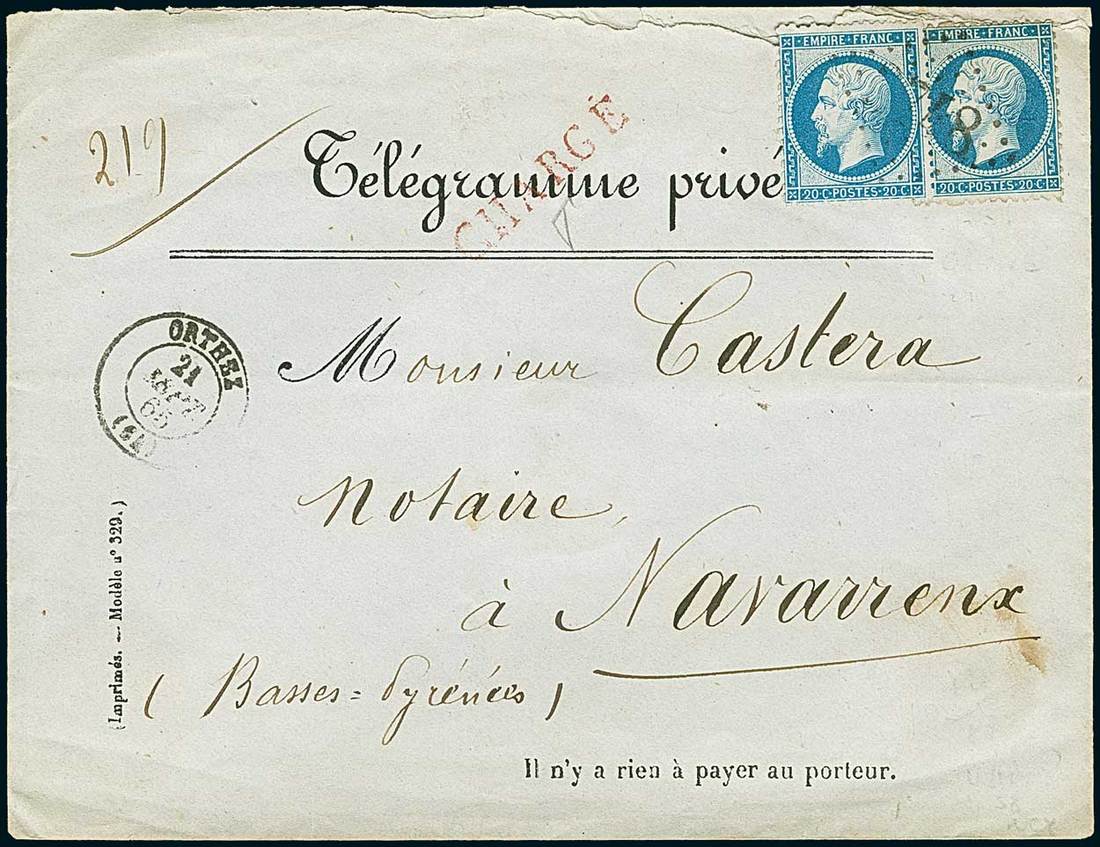 EMPIRE FRANC
EMPIRE FRANC
20·C·POSTES·20·C
20·C·POSTES·20·C
219
CHARGÉ
Télégramme privé
Monsieur Castera
ORTHEZ
21
SEPT
65
(64)
Notaire
à Navarrenx
(Basses=Pyrénées)
(Imprimés. — Modèle n° 329.)
Il n'y a rien à payer au porteur.